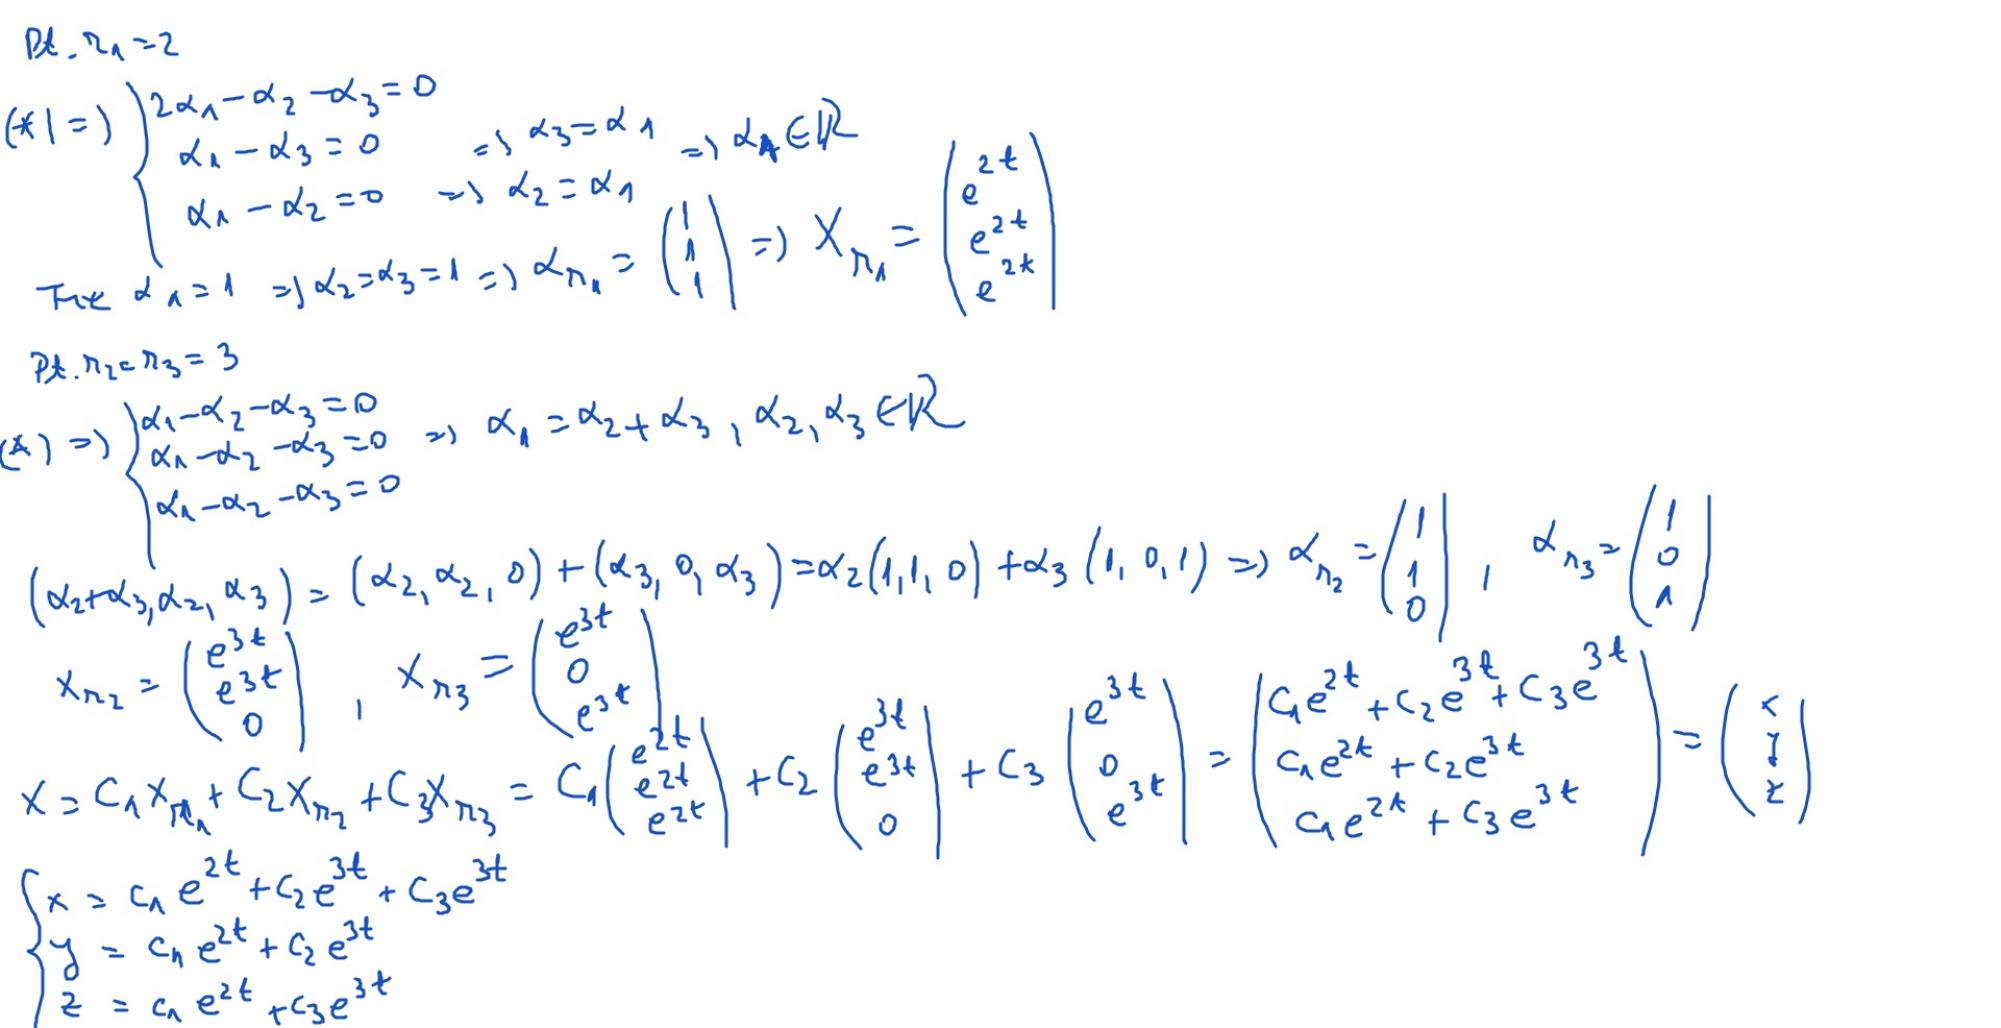 Pt. r₁ = 2
(*) => { 2α₁ - α₂ - α₃ = 0
α₁ - α₃ = 0 => α₃ = α₁ => α₁ ∈ ℝ
α₁ - α₂ = 0 => α₂ = α₁
Fie α₁ = 1 => α₂ = α₃ = 1 => α_r₁ = (1 1 1) => X_r₁ = (e^2t e^2t e^2t)
Pt. r₂ = r₃ = 3
(*) => { α₁ - α₂ - α₃ = 0
α₁ - α₂ - α₃ = 0 => α₁ = α₂ + α₃, α₂, α₃ ∈ ℝ
α₁ - α₂ - α₃ = 0
(α₂+α₃, α₂, α₃) = (α₂, α₂, 0) + (α₃, 0, α₃) = α₂(1, 1, 0) + α₃(1, 0, 1) => α_r₂ = (1 1 0), α_r₃ = (1 0 1)
X_r₂ = (e^3t e^3t 0), X_r₃ = (e^3t 0 e^3t)
X = C₁X_r₁ + C₂X_r₂ + C₃X_r₃ = C₁(e^2t e^2t e^2t) + C₂(e^3t e^3t 0) + C₃(e^3t 0 e^3t) = (C₁e^2t + C₂e^3t + C₃e^3t C₁e^2t + C₂e^3t C₁e^2t + C₃e^3t) = (x y z)
{ x = C₁e^2t + C₂e^3t + C₃e^3t
y = C₁e^2t + C₂e^3t
z = C₁e^2t + C₃e^3t